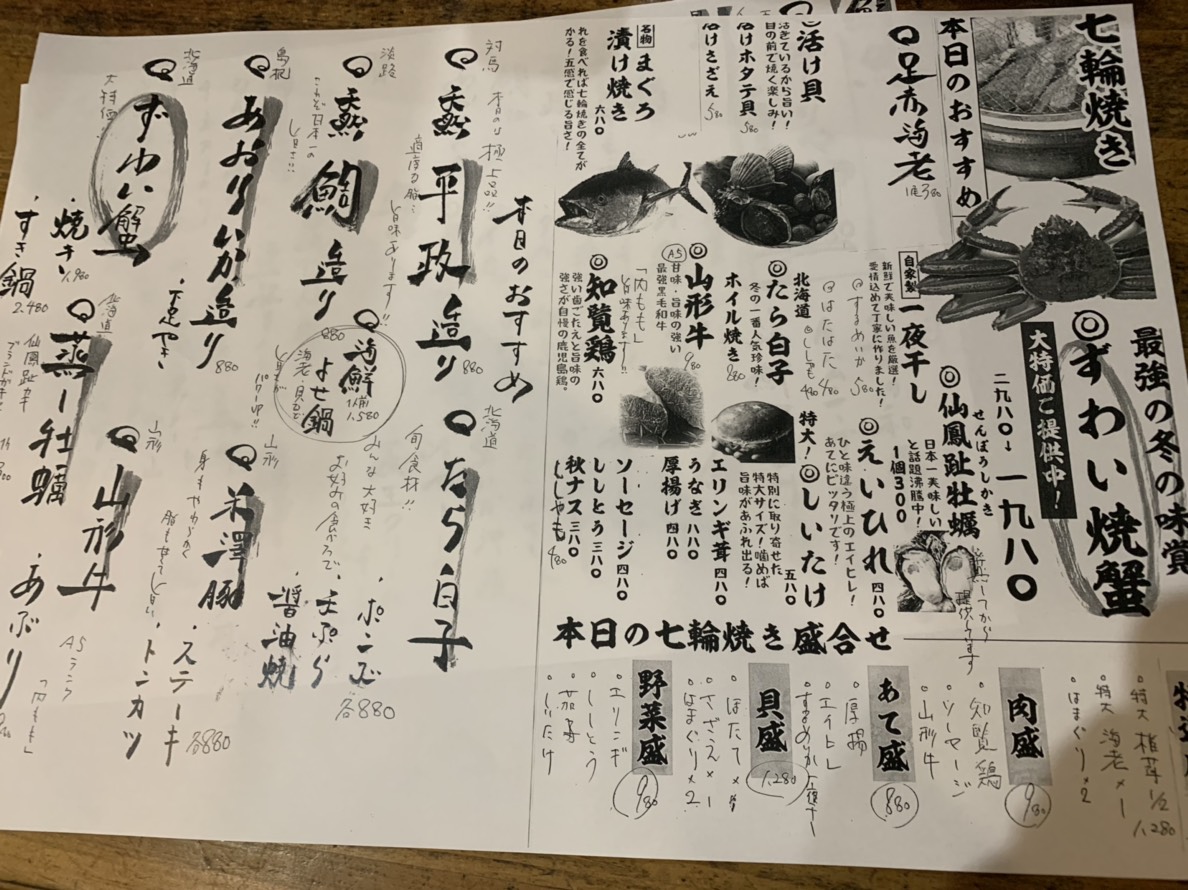 七輪焼き
本日のおすすめ
足赤海老
1尾380
活け貝
活きているから旨い!
目の前で焼く楽しみ!
活けホタテ貝 580
活けさざえ 580
名物
まぐろ
漬け焼き
六八〇
れを食べれば七輪焼きの全てが
かる!五感で感じる旨さ!
最強の冬の味覚
◎ずわい焼蟹
二九八〇→一九八〇
大特価ご提供中!
◎仙鳳趾牡蠣
せんぽうしかき
日本一美味しい
と話題沸騰中!
1個300
自家製
一夜干し
新鮮で美味しい魚を厳選!
愛情込めて丁寧に作りました!
◎するめいか 580
◎はたはた 480
北海道
◎ししゃも 480
◎たら白子
冬の一番人気珍味!
ホイル焼き 980
◎山形牛 980
A5
甘味・旨味の強い
最強黒毛和牛
「内もも」
旨味あります!!
◎知覧鶏
六八〇
強い歯ごたえと旨味の
強さが自慢の鹿児島鶏。
◎えいひれ 四八〇
ひと味違う極上のエイヒレ!
あてにピッタリです!
特大!◎しいたけ
五八〇
特別に取り寄せた
特大サイズ!噛めば
旨味があふれ出る!
エリンギ茸 四八〇
うなぎ 八八〇
厚揚げ 四八〇
ソーセージ 四八〇
ししとう 三八〇
秋ナス 三八〇
ししゃも 480
本日の七輪焼き盛合せ
・特大 椎茸 1/2
・特大 海老×1
・はまぐり×2
1,280
肉盛
・知覧鶏
・ソーセージ
・山形牛
980
あて盛
・厚揚
・エイヒレ
・するめいか一夜干し
880
貝盛
・ほたて×1
・さざえ×1
・はまぐり×2
1,280
野菜盛
・エリンギ
・ししとう
・茄子
・しいたけ
980
本日のおすすめ
対馬 本日の極上品!!
天然平政造り
適度な脂と旨味あります!!
880
淡路
これぞ日本一の旨さ!!
天然鯛造り
880
島根
あおりいか造り
880
・下足やき
北海道
大特価!
ずわい蟹
・焼き 1,980
・すき鍋 2,480
北海道
たら白子
旬食材!!
みんな大好き
お好みの食べ方で、
・ポン酢
・天ぷら
・醤油焼
各880
海鮮よせ鍋
1人前
1,580
海老・貝など
パワーUP!!
山形
米澤豚
身もやわらかく
脂も甘くて旨い
・ステーキ
・トンカツ
各880
山形
山形牛
A5ランク
「内もも」
・あぶり
北海道
蒸し牡蠣
仙鳳趾カキ